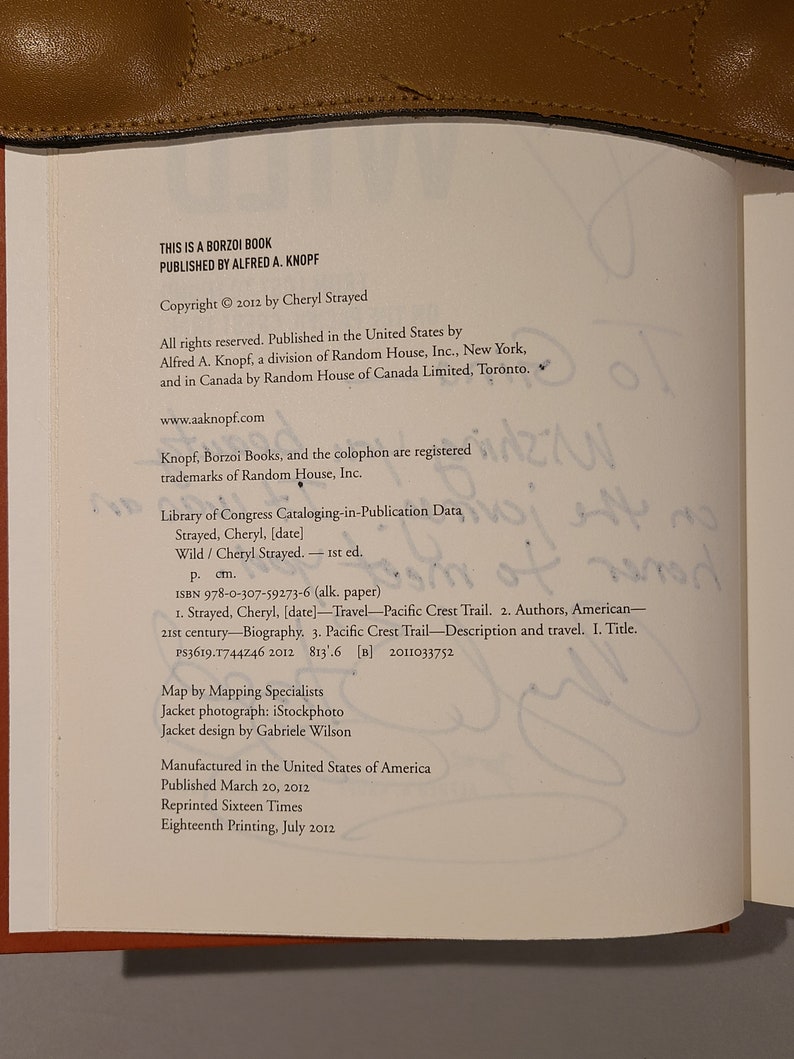 WILD
THIS IS A BORZOI BOOK
PUBLISHED BY ALFRED A. KNOPF
Copyright © 2012 by Cheryl Strayed
All rights reserved. Published in the United States by
Alfred A. Knopf, a division of Random House, Inc., New York,
and in Canada by Random House of Canada Limited, Toronto.
www.aaknopf.com
Knopf, Borzoi Books, and the colophon are registered
trademarks of Random House, Inc.
Library of Congress Cataloging-in-Publication Data
Strayed, Cheryl, [date]
Wild / Cheryl Strayed. — 1st ed.
p. cm.
ISBN 978-0-307-59273-6 (alk. paper)
1. Strayed, Cheryl, [date]—Travel—Pacific Crest Trail. 2. Authors, American—
21st century—Biography. 3. Pacific Crest Trail—Description and travel. I. Title.
PS3619.T744Z46 2012 813'.6 [B] 2011033752
Map by Mapping Specialists
Jacket photograph: iStockphoto
Jacket design by Gabriele Wilson
Manufactured in the United States of America
Published March 20, 2012
Reprinted Sixteen Times
Eighteenth Printing, July 2012
To
Wishing you beauty
on the journey. It was an
honor to meet you.